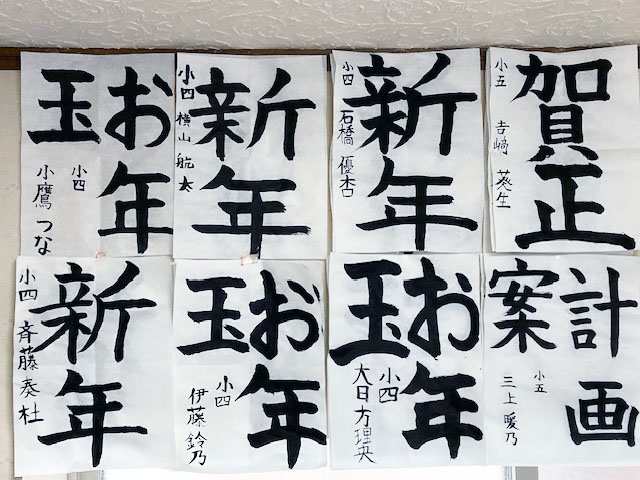 賀正
小五 吉﨑 葵生
新年
小四 石橋 優杏
新年
小四 横山 航太
お年
玉
小四
小鷹つな
計画
案
小五
三上 暖乃
お年
玉
小四
大日方理央
お年
玉
小四
伊藤鈴乃
新年
小四 斉藤奏杜